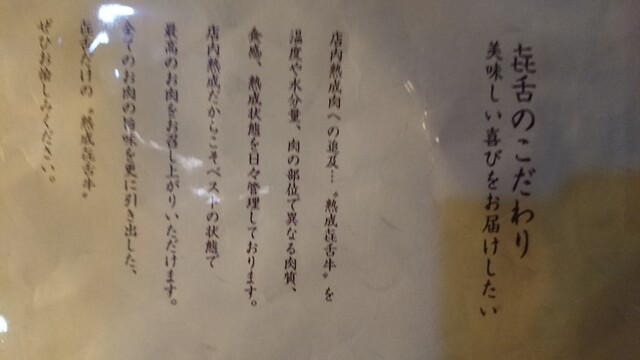 㐂舌のこだわり
美味しい喜びをお届けしたい
店内熟成肉への追及…〝熟成㐂舌牛〟を
温度や水分量、肉の部位で異なる肉質、
食感、熟成状態を日々管理しております。
店内熟成だからこそベストの状態で
最高のお肉をお召し上がりいただけます。
全てのお肉の旨味を更に引き出した、
㐂舌だけの〝熟成㐂舌牛〟
ぜひお愉しみください。